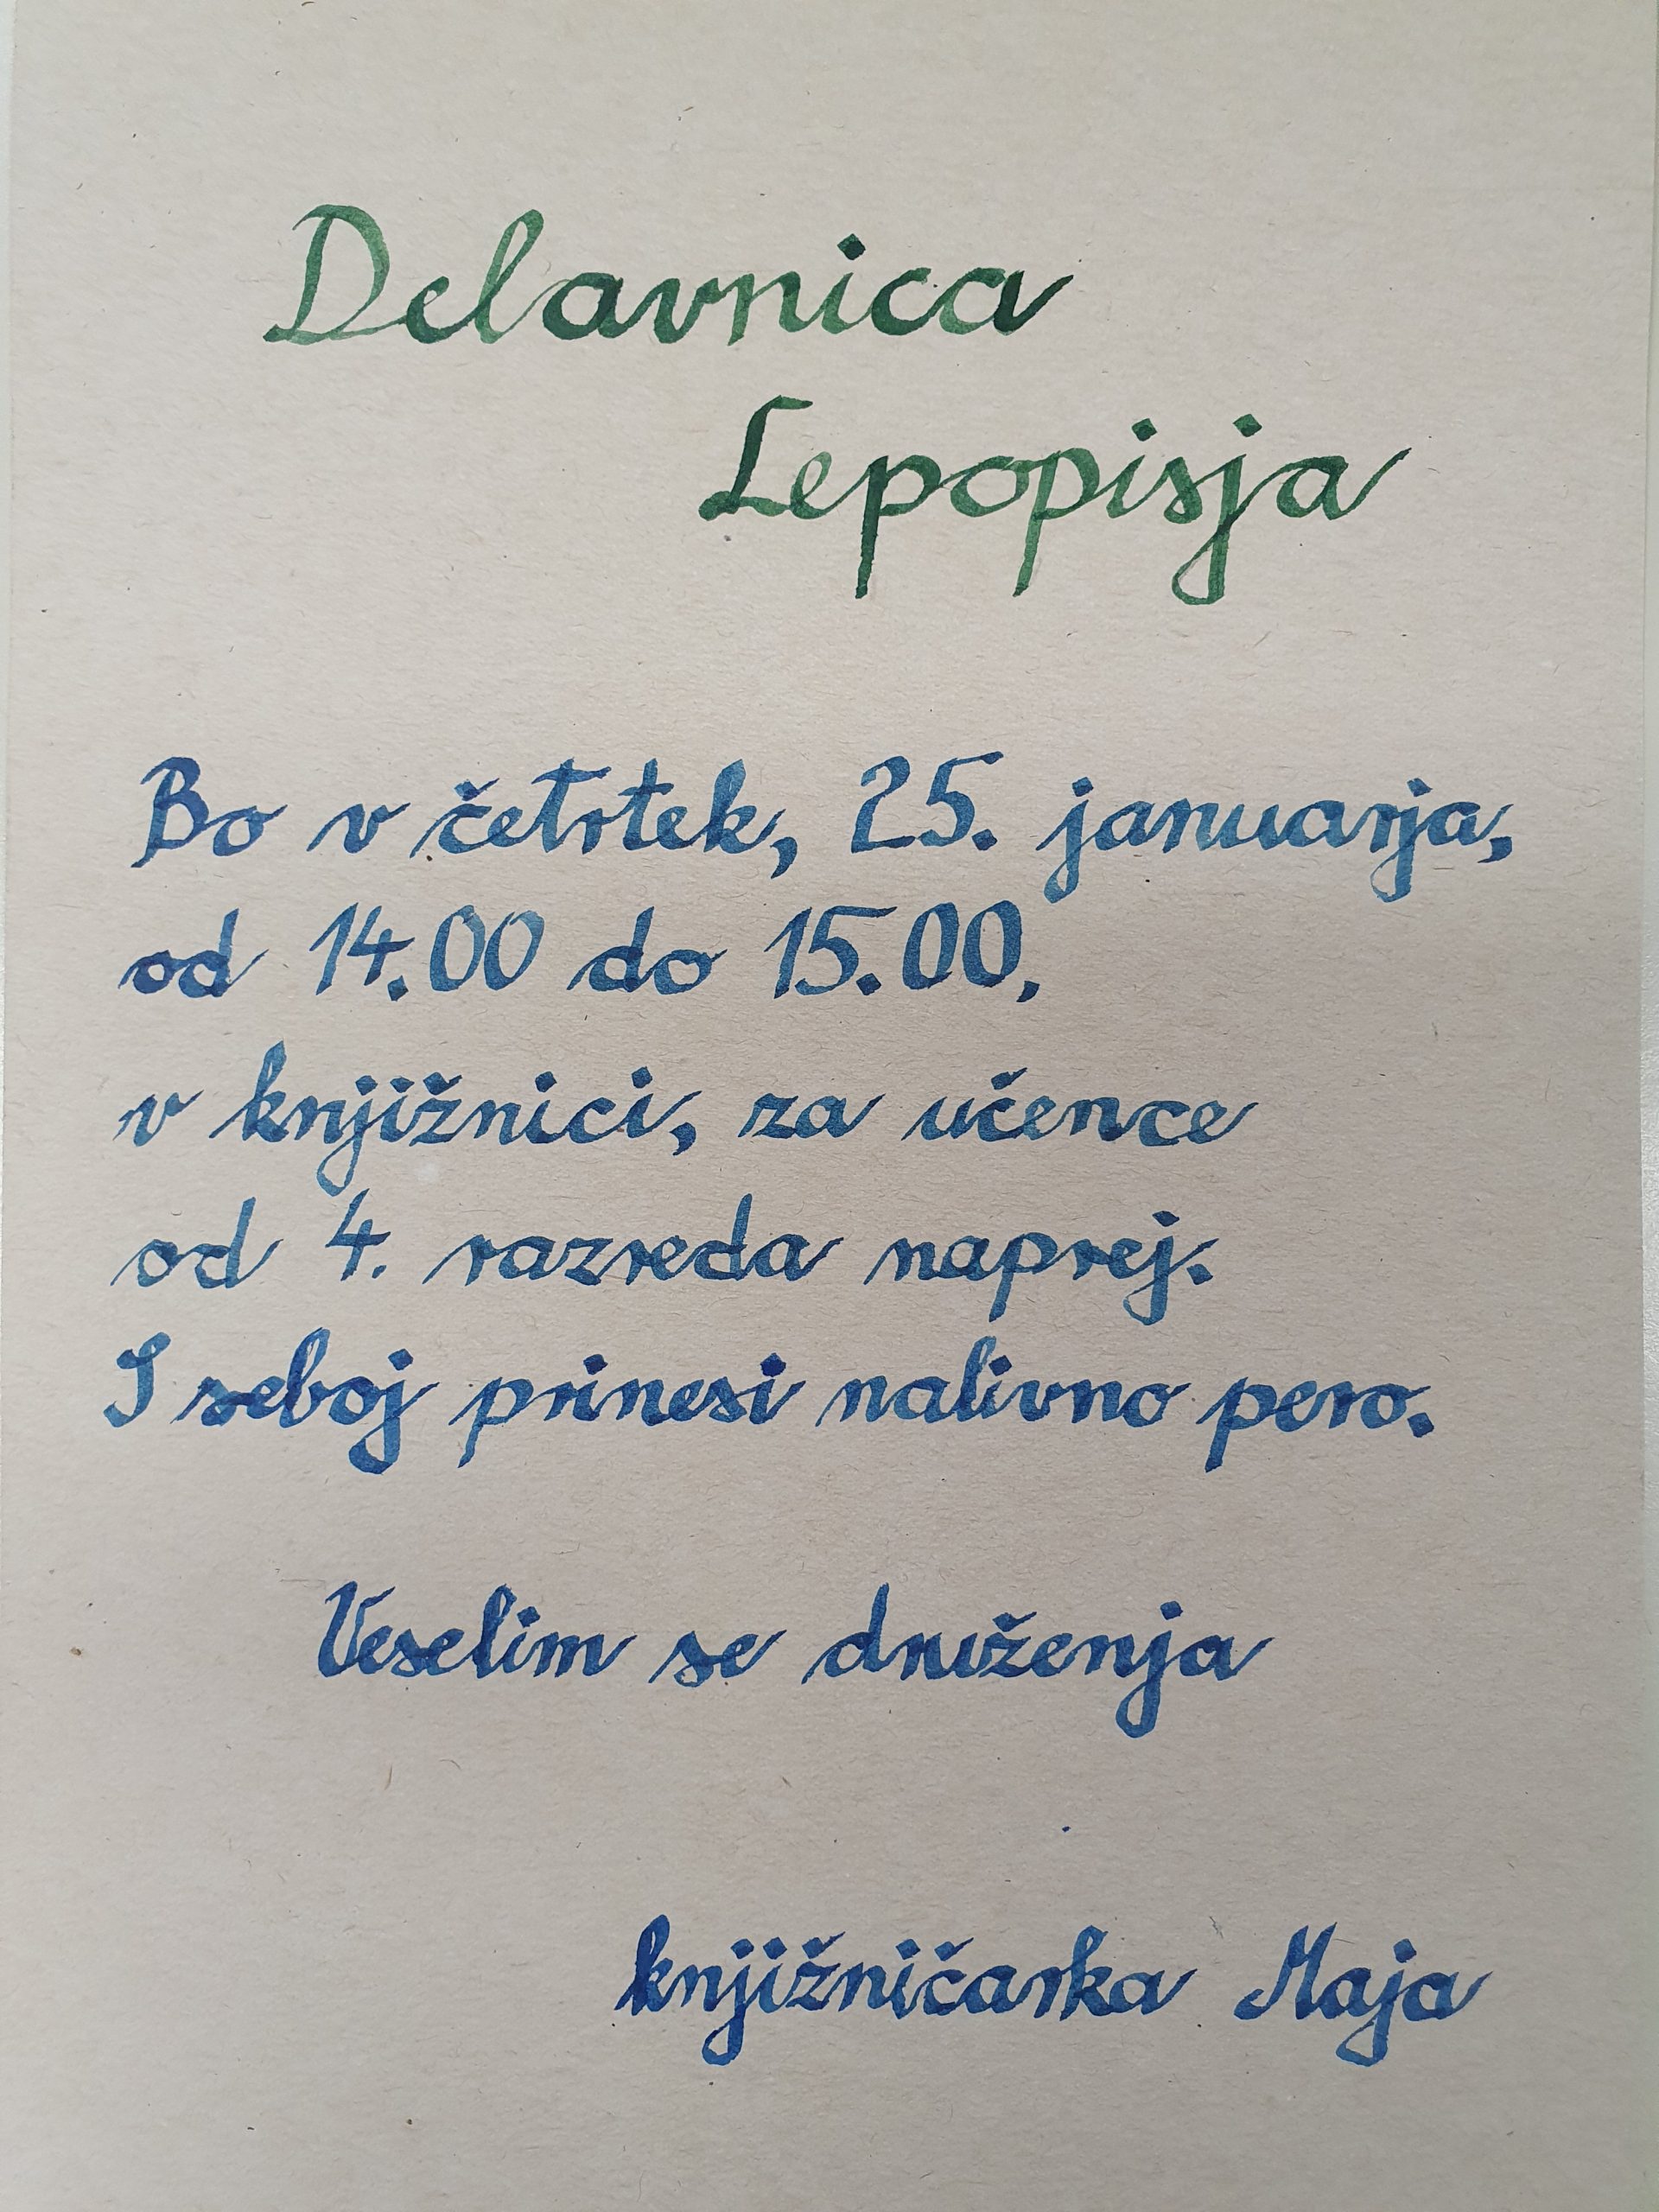 Delavnica
Lepopisja
Bo v četrtek, 25. januarja,
od 14.00 do 15.00,
v knjižnici, za učence
od 4. razreda naprej.
S seboj prinesi nalivno pero.
Veselim se druženja
knjižničarka Maja